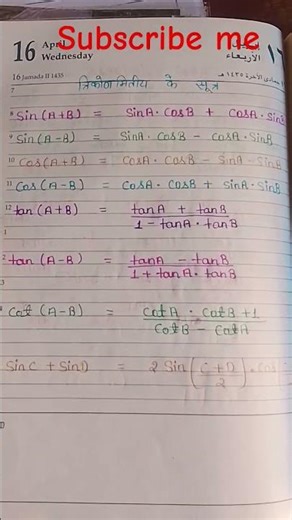 Subscribe me
16 April
Wednesday
الأربعاء
16 Jumada II 1435
त्रिकोणमितीय के सूत्र
8 Sin (A+B) = SinA · CosB + CosA · SinB
9 Sin (A-B) = SinA · CosB - CosA · SinB
10 Cos (A+B) = CosA · CosB - SinA · SinB
11 Cos (A-B) = CosA · CosB + SinA · SinB
12 tan (A+B) = tanA + tanB
1 - tanA · tanB
1
2 tan (A-B) = tanA - tanB
1 + tanA · tanB
3
Cot (A-B) = CotA · CotB + 1
CotB - CotA
SinC + SinD = 2 Sin (C+D
2) · Cos